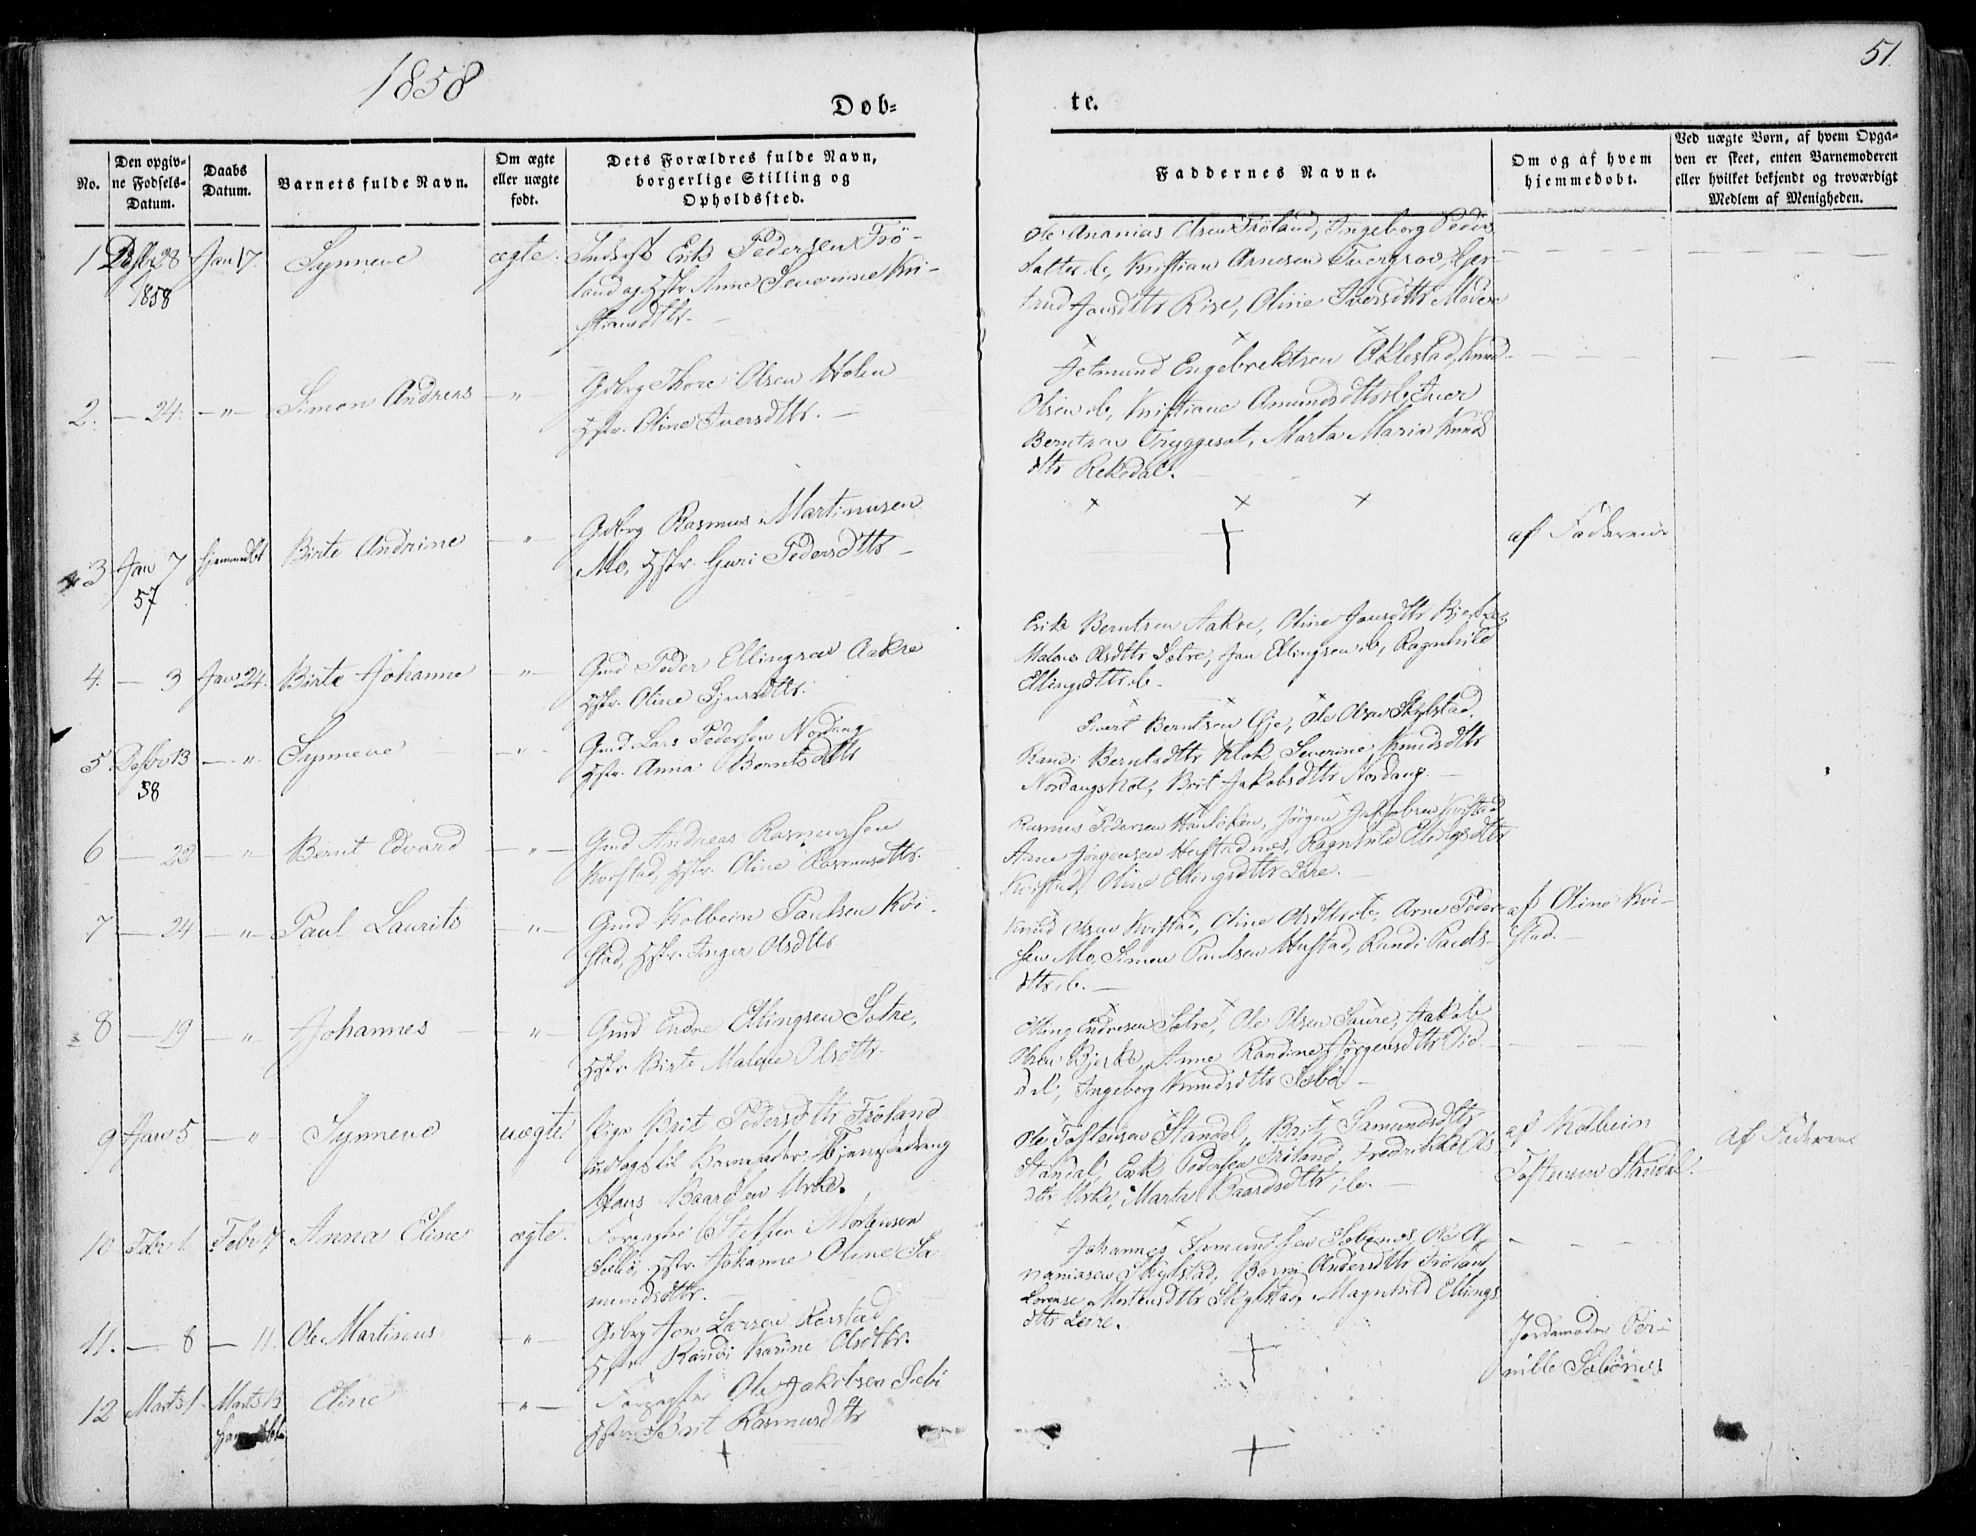 1858
51.
Døb-
te.
No.
Den opgiv-
ne Fødsels-
Datum.
Daabs
Datum.
Barnets fulde Navn.
Om ægte
eller uægte
født.
Dets Forældres fulde Navn,
borgerlige Stilling og
Opholdssted.
Faddernes Navne.
Om og af hvem
hjemmedøbt.
Ved uægte Børn, af hvem Opga-
ven er skeet, enten Barnemoderen
eller hvilket bekjendt og troværdigt
Medlem af Menigheden.
1 28 Jan 17. Synneve ægte. Erik Pedersen Frö-
1858 land og Hstr. Anne Severine Kri-
stiansdttr.
Ole Ananias Olsen Fröland, Ingeborg
ib, Kristian Arnesen
Jonsdttr Rise, Oline Iversdttr
2. 24. " Simon Andreas " Gdbrg Thore Olsen Holen
Hstr. Oline Iversdttr.
Jetmund Engebrektsen Aklestad, Knud
Olsen ib, Kristiane Amundsdttr ib, Iver
Berntsen Tryggeset, Marta Maria Knuds
dttr Rekedal.
3 Jan 7 hjemmedbt Birte Andrine " Gdbrg Rasmus Martinusen
57 Mo, Hstr. Guri Pedersdttr
af Faderen
4. 3 Jan 24. Birte Johanne " Gmd Peder Ellingsen Aakre
Hstr. Oline
Erik Berntsen Aakre, Oline Jonsdttr
Olsdttr Sætre, Jon Ellingsen ib, Ragnhild
Ellingsdttr ib.
5 13 " Synneve " Gmd Lars Pedersen Nordang
58 Hstr. Anna Berntsdttr
Sivert Berntsen Øje, Ole Olsen Skylstad,
Randi Berntsdttr Klok, Severine Knudsdttr
Nordangshol, Brit Jakobsdttr Nordang.
6 22 " Bernt Edvard " Gmd Andreas Rasmussen
Kvistad, Hstr. Oline Rasmusdttr.
Rasmus Pedersen Jörgen Jakobsen Kvistad
Arne Jörgensen Hustadnes, Ragnhild Ellingsdttr
Kvistad, Oline Ellingsdttr
7 24 " Paul Laurits " Gmd Kolbein Paulsen Kvi-
stad, Hstr. Inger Olsdttr
Knud Olsen Kvistad, Oline Olsdttr ib, Arne Peder-
sen Mo, Simon Paulsen Hustad, Randi Pauls-
dttr ib.
af Oline Kvi-
stad.
8 19 " Johannes " Gmd Endre Ellingsen Sætre,
Hstr. Birte Malene Olsdttr.
Elling Endresen Sætre, Ole Olsen Saure, Jakob
Olsen Bjerke, Anne Randine Jörgensdttr
Ingeborg Knudsdttr
9 Jan 5 " Synneve uægte Pige Brit Pedersdttr Fröland
til Barnefader
Hans Baardsen Urke.
Ole Tostensen Standal, Brit Samundsdttr
Standal, Erik Pedersen Fröland, Fredrikke
dttr Urke, Marta Baardsdttr ib.
af Kolbein
Tostensen Standal.
af Faderen
10 Febr 1. Febr 7 Anna Eline ægte. Steffen Mortensen
Sæbö, Hstr. Johanne Oline Sa-
mundsdttr.
Johannes Samundsen Sæbönes, Ole A-
naniasen Skylstad, Andersdttr Fröland,
Lorense Mortensdttr Skylstad, Magnhild Ellings
dttr
11. 8 11. Ole Martinus " Gdbrg Jon Larsen Rørstad
Hstr. Randi Karine Olsdttr.
Jordemoder Per-
nille Sæbönes
12 Marts 1 Marts Eline " Ole Jakobsen Sæbö
Hstr. Brit Rasmusdttr